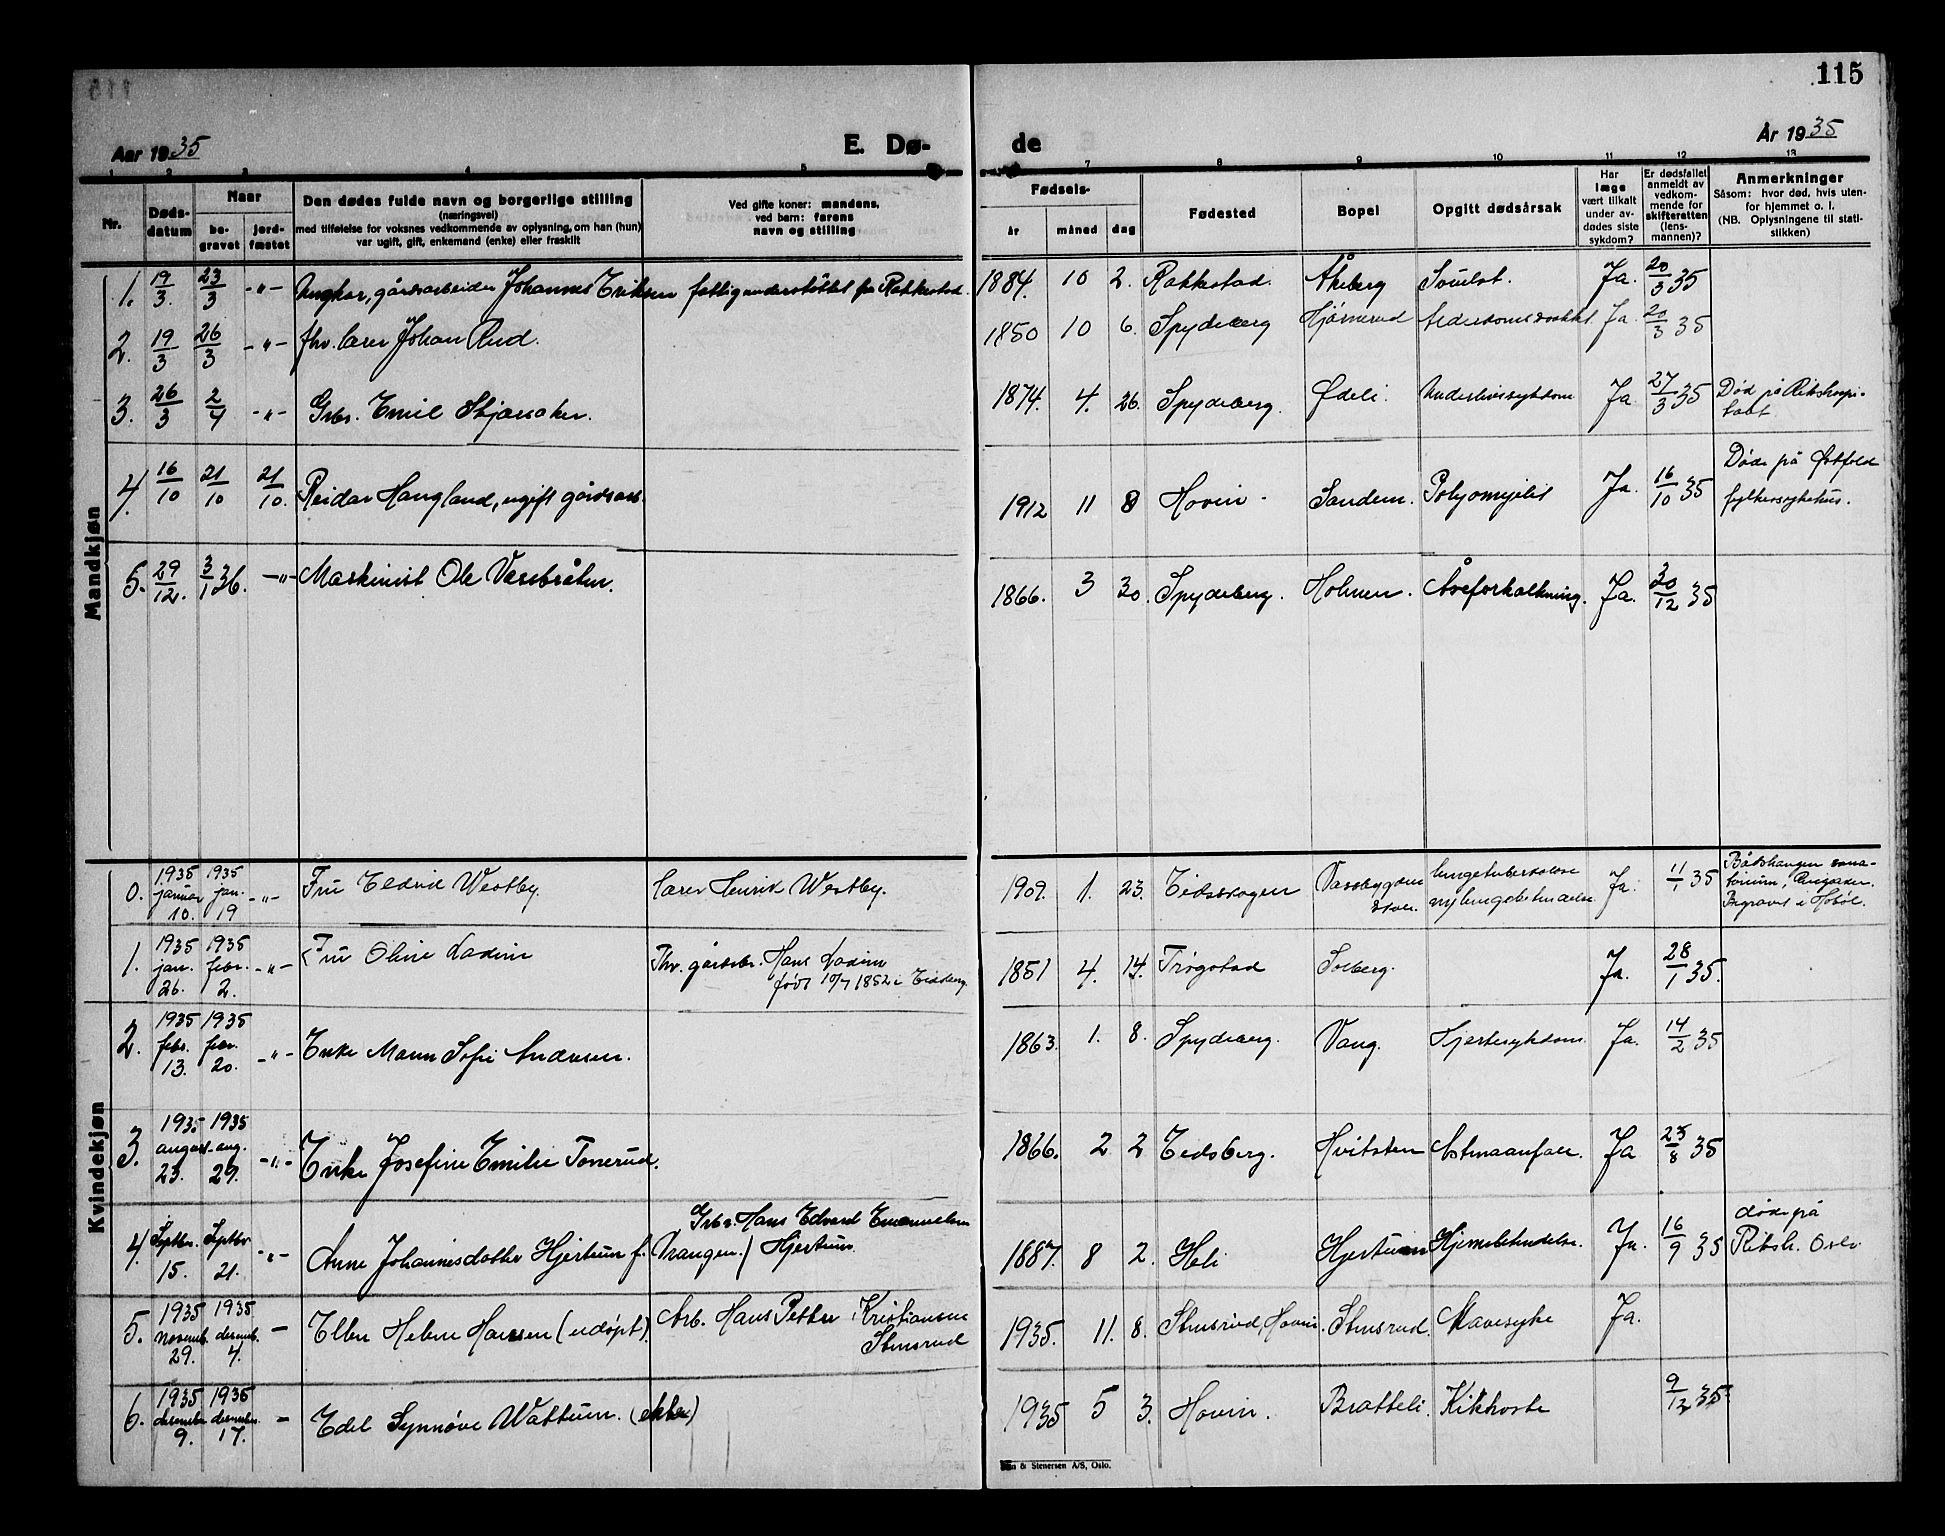 115
Aar 1935
E. Dø-
de
År 1935
1 2 3 4 5
7 8 9 10 11 12 13
Nr.
Døds-
datum
Naar
be-
gravet
jord-
fæstet
Den dødes fulde navn og borgerlige stilling
(næringsvei)
med tilføielse for voksnes vedkommende av oplysning, om han (hun)
var ugift, gift, enkemand (enke) eller fraskilt
Ved gifte koner: mandens,
ved barn: farens
navn og stilling
Fødsels-
år måned dag
Fødested
Bopel
Opgitt dødsårsak
Har
læge
vært tilkalt
under av-
dødes siste
sykdom?
Er dødsfallet
anmeldt av
vedkom-
mende for
skifteretten
(lens-
mannen)?
Anmerkninger
Såsom: hvor død, hvis uten-
for hjemmet o. l.
(NB. Oplysningene til stati-
stikken)
Mandkjøn
1. 19/3. 23/3 -"- Ungkar, gårdsarbeider Johannes Eriksen fattigunderstöttet fra Rakkestad. 1884. 10 2. Rakkestad. Åkeberg Ja. 20/3 35
2. 19/3 26/3 -"- fhv. lærer Johan Rud. 1850 10 6. Spydeberg Hjørnerud Ja. 20/3 35
3. 26/3 2/4 -"- Grbr. Emil Skjæraker. 1874. 4. 26. Spydeberg. Ødeli. Underlivssykdom Ja 27/3 35 Död på Rikshospi-
talet.
4. 16/10 21/10 21/10. Reidar Haugland, ugift gårdsarb. 1912 11 8 Hovin. Sandem. Polyomyelit Ja. 16/10 35 Döde på Østfold
fylkessykehus.
5. 29/12. 3/1 36. -"- Maskinist Ole Vassbråten. 1866. 3 30. Spydeberg. Holmen. Åreforkalkning. Ja. 30/12 35
Kvindekjøn
0. 1935 januar 10. 1935 jan. 19 -"- Fru Eldrid Westby. Lærer Henrik Westby. 1909. 1. 23. Eidsskogen Vassbygden
skole. lungetuberkulose
Ja. 11/1 35 sana-
torium,
Begravet i Hobøl.
1. 1935 jan. 26. 1935 febr. 2. -"- Fru Oline Ladim Fhv. gårdsbr. Hans Ladim
født 10/7 1852 i Eidsberg. 1851 4. 14. Trøgstad Solberg. Ja. 28/1 35.
2. 1935 febr. 13. 1935 febr. 20. -"- Enke Maren Sofie Andersen. 1863. 1. 8. Spydeberg. Vang. Hjertesykdom Ja. 14/2 35
3. 1935 august 23. 1935 aug. 29. -"- Enke Josefine Emilie Tonerud. 1866. 2 2 Eidsberg. Hvitsten Astmaanfall. Ja 25/8 35
4. Septbr. 15. Septbr 21. -"- Anne Johannesdatter Hjertum f. Vrangen. / Grbr. Hans Edvard Emanuelsen
Hjertum. 1887. 8 2. Heli Hjertum Hjernebetendelse. Ja. 16/9 35 døde på
Riksh. Oslo
5. 1935 novemb. 29. 1935 desemb. 4. - Ellen Helene Hansen (udöpt). Arb. Hans Petter Kristiansen
Stensrud 1935. 11. 8. Stensrud, Hovin. Stensrud. Mavesyke Ja.
6. 1935 desember 9. 1935 desember. 17. - Edel Synnöve Wattum. (ekte) 1935 5 3. Hovin. Bratteli. Kikhoste 9/12 35
& Stenersen A/S, Oslo.